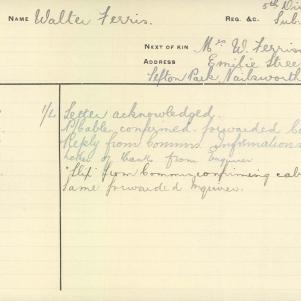 5th Di
NAME Walter Ferris. REG. &C. Sub.
NEXT OF KIN Mrs W. Ferris
ADDRESS Emilie Stree
Sefton Park, Nailsworth
1/2 Letter acknowledged.
Cable confirmed forwarded
Reply from Comms informations
Letter of thanks from Enquirer
"Slip" from Commrs, confirming cab
Same forwarded Enquirer.